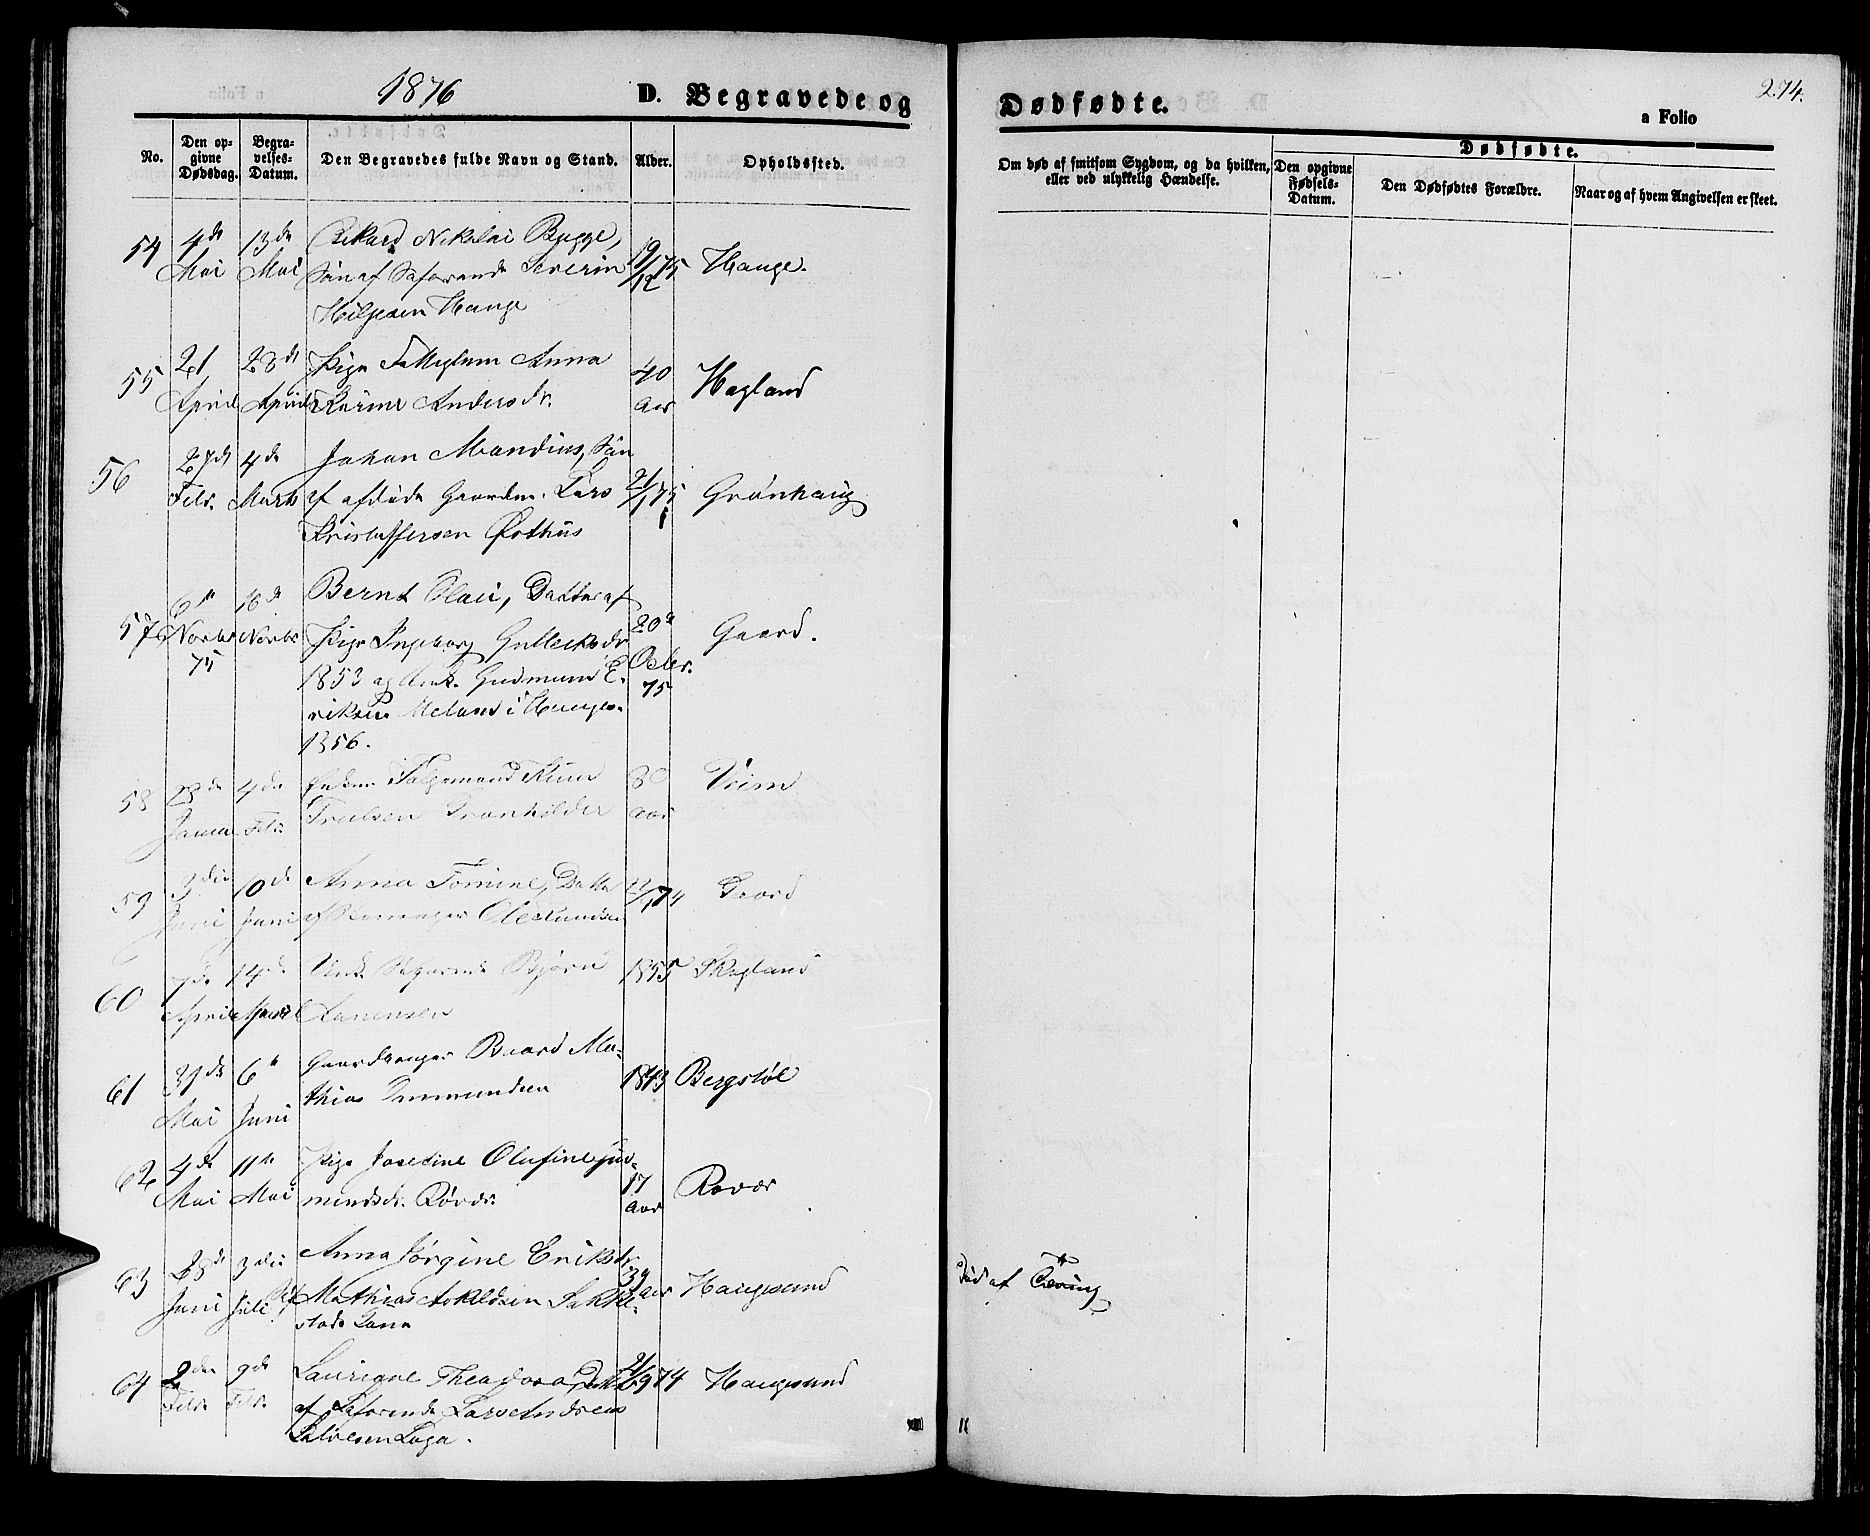 1876
D. Begravede og
Dødfødte.
274.
a Folio
No.
Den op-
givne
Dødsdag.
Begra-
velses-
Datum.
Den Begravedes fulde Navn og Stand.
Alder.
Opholdssted.
Om død af smitsom Sygdom, og da hvilken,
eller ved ulykkelig Hændelse.
Dødfødte.
Den opgivne
Fødsels-
Datum.
Den Dødfødtes Forældre.
Naar og af hvem Angivelsen er skeet.
54 4de Mai 13de Mai Rikard Nikolai Bugge,
Søn af Søfarende Severin
Helgesen Hauge
19/12 75 Hauge.
55 21 April 28de April Pige Anna
Karine Andersdr.
40 Aar Hagland
56 27de Febr. 4de Marts Johan Mandius, Søn
af afdøde Gaardm. Lars
Kristoffersen Østhus
21/1 75 Grønhaug
57 6te Novbr 75 16de Novbr Bernt Olai, Datter af
Pige Ingeborg Gulleiksdr
1853 og Unk. Gudmund E-
riksen Meland i Hauges.
1856.
20de Octbr. 75 Gaard.
58 28de Januar 4de Febr
Troelsen
80 Aar
59 3die Juni 10de Juni Anna Tomine, Datter
af
22/1 74 Gaard
60 7de April 14de April Unk. Søfarende Bjørn
1855
61 31de Mai 6te Juni Gaardbruger Baard Ma-
thias
1843 Bergstøl
62 4de Mai 11te Mai Pige Josefine Olufine Gud-
mundsdr. Røvær
17 Aar Røvær
63 28de Juni 3die Juli Anna Jørgine Eriksdr
Mathias Askildsen Sakke-
stads Kone
39 Aar Haugesund død af Tæring
64 2den Febr. 9de Febr. Laurigne Theadora, Datt
af Søfarende Lars Andreas
Salvesen Laga.
21/9 74 Haugesund